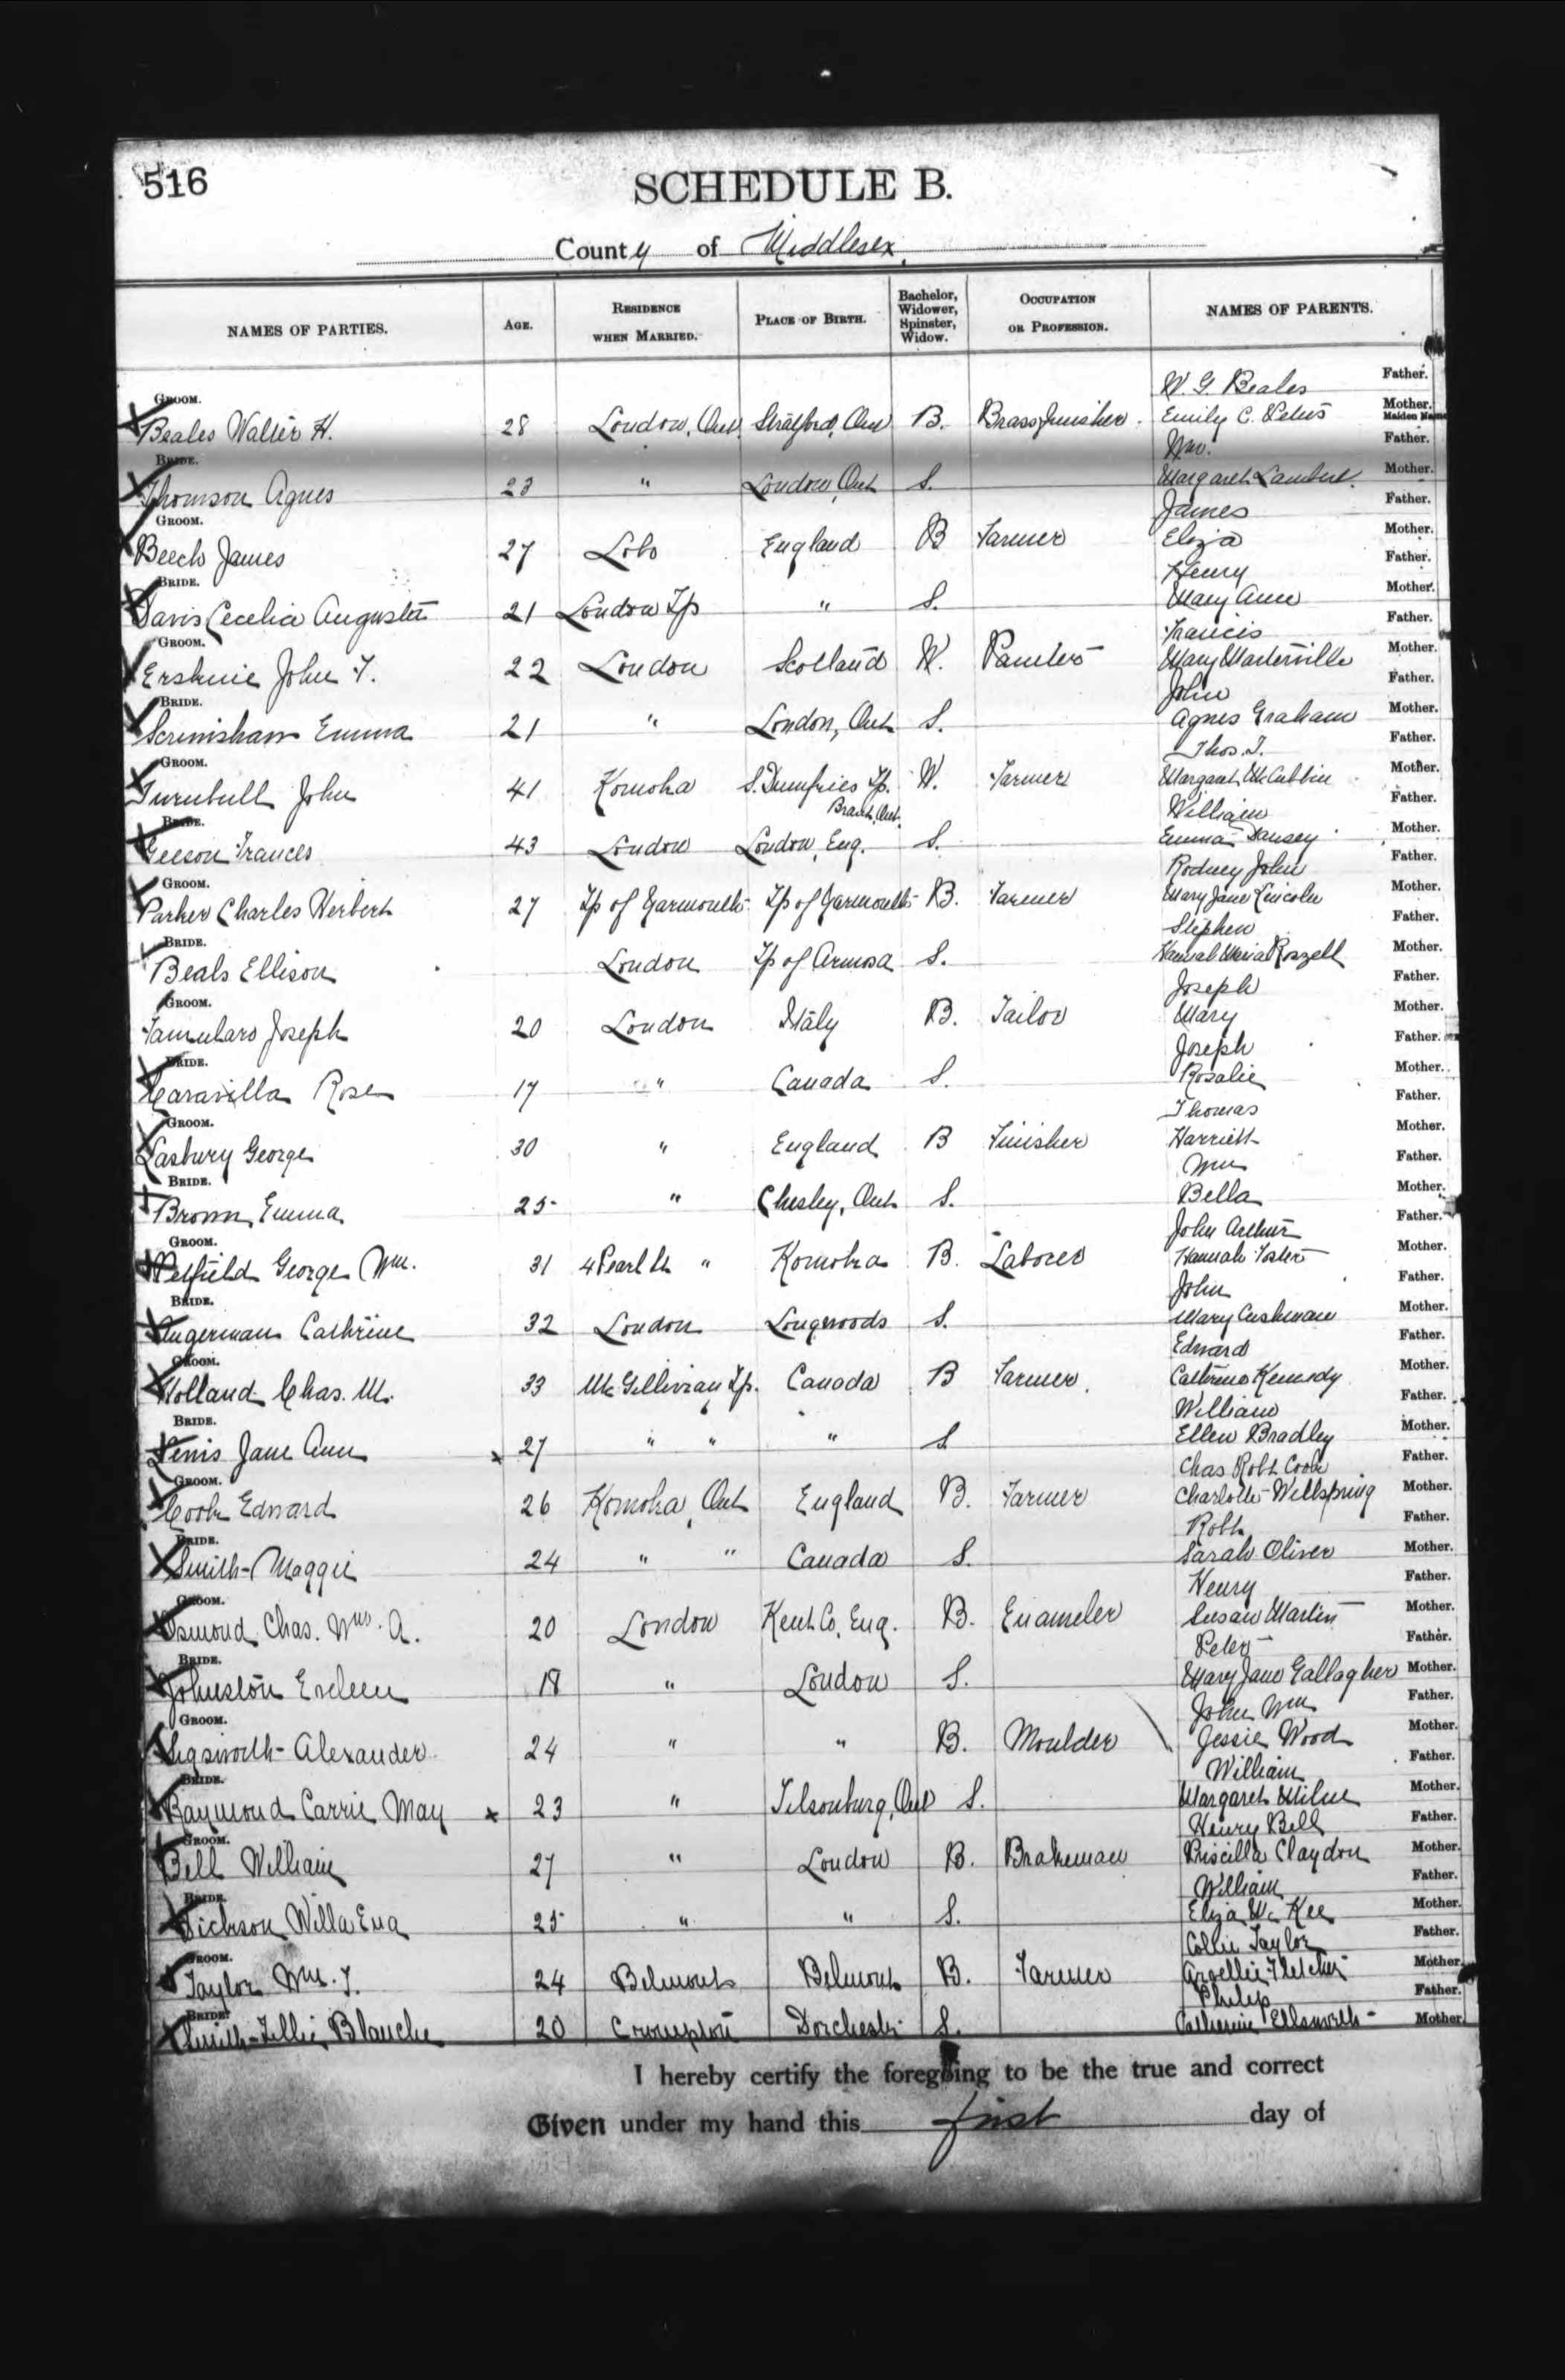 516
SCHEDULE B.
County of Middlesex
NAMES OF PARTIES. AGE. RESIDENCE WHEN MARRIED. PLACE OF BIRTH. Bachelor, Widower, Spinster, Widow. OCCUPATION OR PROFESSION. NAMES OF PARENTS.
W. G. Beales Father.
GROOM. Beales Walter H. 28 London, Ont. Stratford, Ont B. Brass finisher. Emily C. Peters Mother. Maiden Name
Wm. Father.
BRIDE. Thomson Agnes 23 " London, Ont S. Margaret Mother.
James Father.
GROOM. Beech James 27 Lobo England B Farmer Eliza Mother.
Henry Father.
BRIDE. Davis Cecelia Augusta 21 London Tp " S. Mary Ann Mother.
Francis Father.
GROOM. Erskine John F. 22 London Scotland W. Painter Mary Mother.
John Father.
BRIDE. Scrimshaw Emma 21 " London, Ont S. Agnes Graham Mother.
Thos. T. Father.
GROOM. Turnbull John 41 Komoka S. Dumfries Tp. Brant, Ont. W. Farmer Margaret McCubbin Mother.
William Father.
BRIDE. Geeson Frances 43 London London, Eng. S. Emma Dansey Mother.
Rodney John Father.
GROOM. Parker Charles Herbert 27 Tp of Yarmouth Tp of Yarmouth B. Farmer Mary Jane Lincoln Mother.
Stephen Father.
BRIDE. Beals Ellison London Tp of S. Hannah Maria Roszell Mother.
Joseph Father.
GROOM. Famularo Joseph 20 London Italy B. Tailor Mary Mother.
Joseph Father.
BRIDE. Caravilla Rose 17 " Canada S. Rosalie Mother.
Thomas Father.
GROOM. Lasbury George 30 " England B Finisher Harriett Mother.
Wm Father.
BRIDE. Brown, Emma 25 " Chesley, Ont S. Bella Mother.
John Arthur Father.
GROOM. Petfield George Wm. 31 4 Pearl St " Komoka B. Laborer Hannah Foster Mother.
John Father.
BRIDE. Angerman Cathrine 32 London Longwoods S. Mary Cushman Mother.
Edward Father.
GROOM. Holland Chas. M. 33 McGillivray Tp. Canada B Farmer. Cathrine Kennedy Mother.
William Father.
BRIDE. Lewis Jane Ann x 27 " " " S Ellen Bradley Mother.
Chas Robt Cook Father.
GROOM. Cook Edward 26 Komoka, Ont England B. Farmer Charlotte Wellspring Mother.
Robt. Father.
BRIDE. Smith Maggie 24 " " Canada S. Sarah Oliver Mother.
Henry Father.
GROOM. Osmond Chas. Wm. A. 20 London Kent Co, Eng. B. Enameler Susan Martin Mother.
Peter Father.
BRIDE. Johnston Eveleen 18 " London S. Mary Jane Gallagher Mother.
John Wm Father.
GROOM. Sigsworth Alexander 24 " " B. Moulder Jessie Wood Mother.
William Father.
BRIDE. Raymond Carrie May x 23 " Tilsonburg, Ont S. Margaret Milne Mother.
Henry Bell Father.
GROOM. Bell William 27 " London B. Brakeman Priscilla Claydon Mother.
William Father.
BRIDE. Dickson Willa Ena 25 " " S. Eliza McKee Mother.
Collie Taylor Father.
GROOM. Taylor Wm. F. 24 Belmont Belmont B. Farmer Fletcher Mother.
Philip Father.
BRIDE. Smith Tillie Blanche 20 Crumpton Dorchester S. Catherine Ellsworth Mother
I hereby certify the foregoing to be the true and correct
Given under my hand this first day of